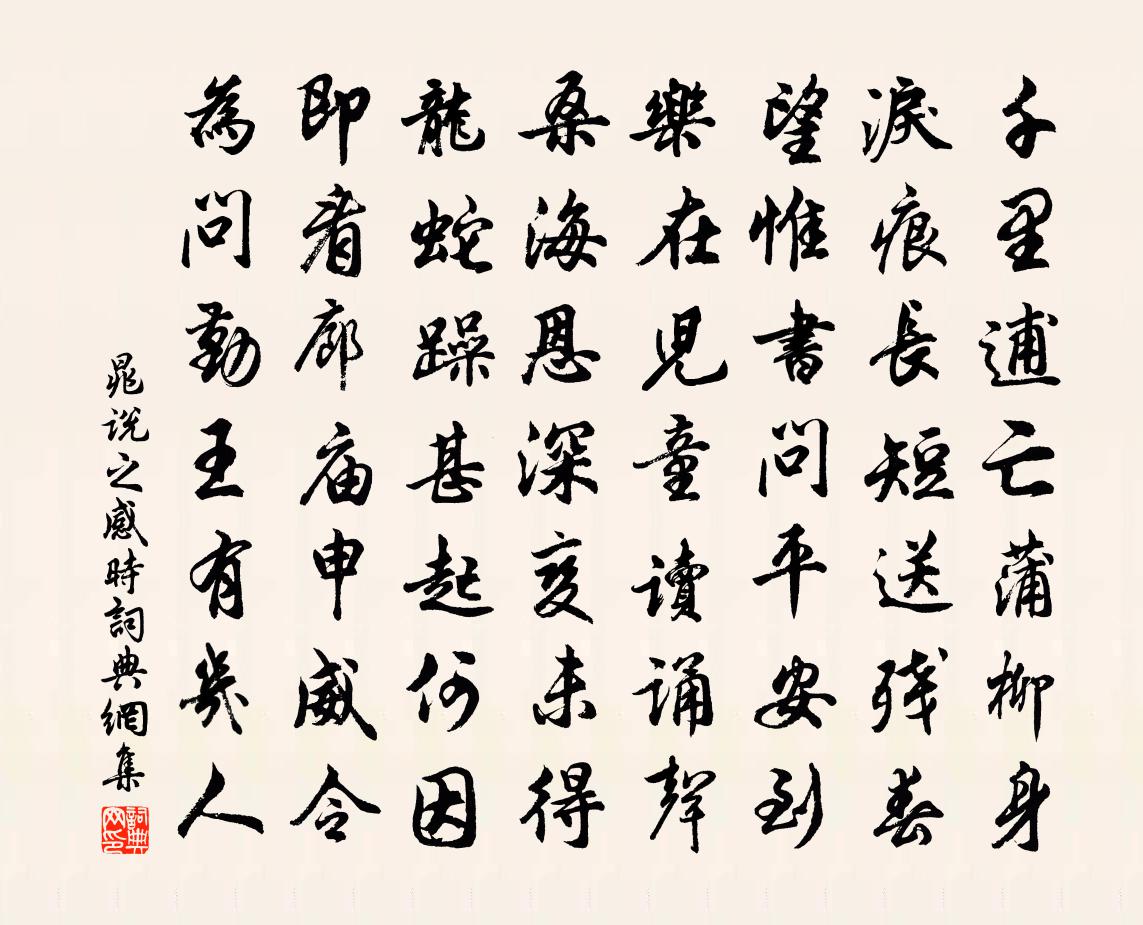 千里逋亡蒲柳身
淚痕長短送殘春
望惟書問平安到
樂在兒童讀誦聲
桑海恩深變未得
龍蛇躁甚起何因
即看廊廟申威令
為問勤王有幾人
晁說之感時詞典網集
詞典網印